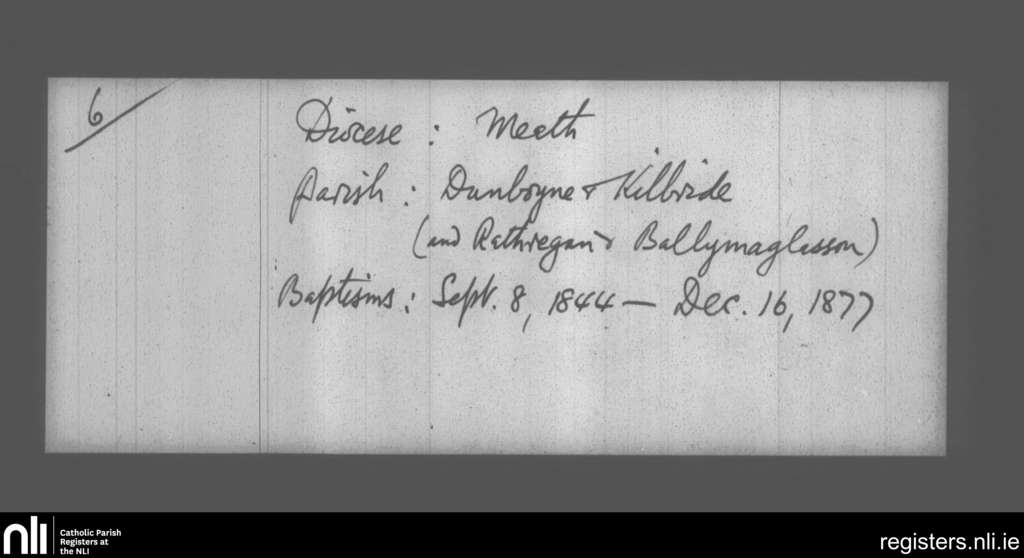 6
Diocese : Meath
Parish : Dunboyne & Kilbride
(and Rathregan & Ballymaglasson)
Baptisms : Sept. 8, 1844 — Dec. 16, 1877
nli
Catholic Parish
Registers at
the NLI
registers.nli.ie